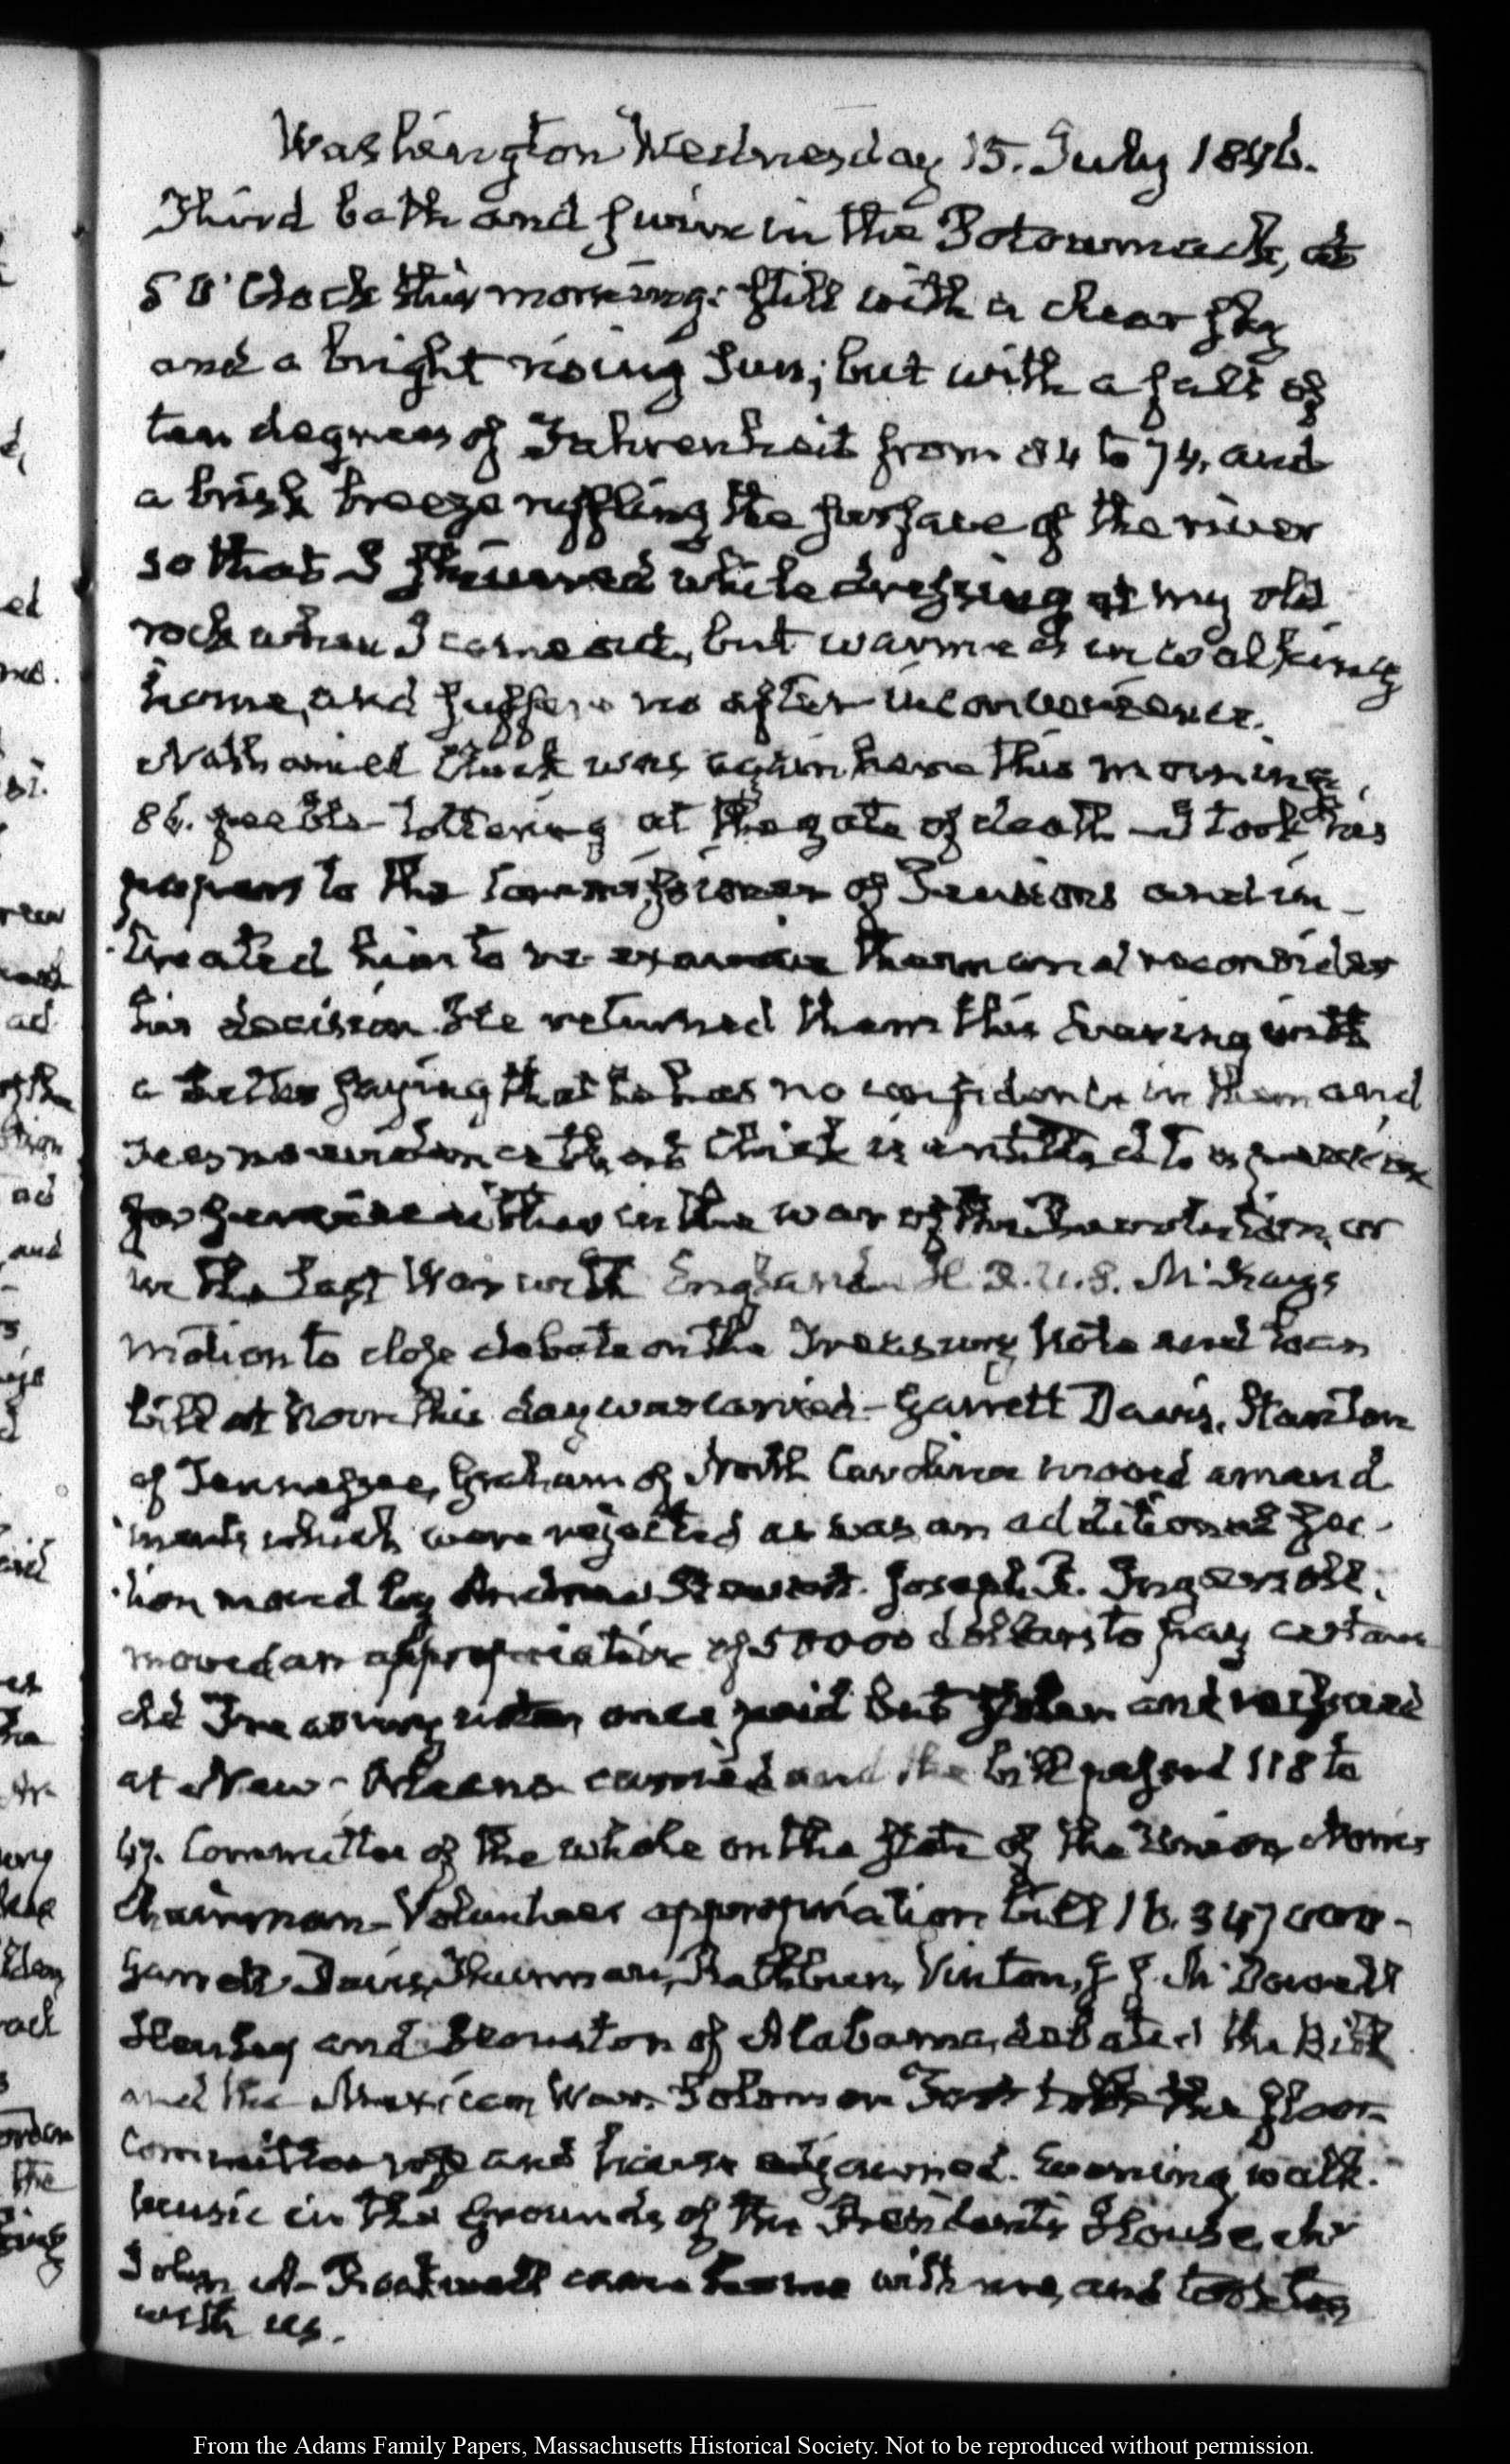 Washington Wednesday 15. July 1846.
Third bath and swim in the Potowmack, at
5 O'Clock this morning: still with a clear sky
and a bright rising Sun; but with a fall of
ten degrees of Fahrenheit from 84 to 74, and
a brisk breeze ruffling the surface of the river
so that I shivered while dressing at my old
rock when I came out, but warmed in walking
home, and suffer no after inconvenience.
Nathaniel was again here this morning,
86. feeble tottering at the gate of death — I took his
papers to the Commissioner of Pensions and in-
treated him to re-examine them and reconsider
his decision. He returned them this Evening with
a letter saying that he has no confidence in them and
sees no evidence that is entitled to a pension
for service either in the war of the Revolution, or
in the last War with England. H.R.U.S. McKay's
motion to close debate on the Treasury Note and loan
bill at Noon this day was carried — Garrett Davis, Stanton
of Tennessee, Graham of North Carolina moved amend
ments which were rejected as was an additional sec-
tion moved by Andrew Stewart. Joseph R. Ingersoll
moved an appropriation of 50000 dollars to pay certain
old Treasury notes, once paid but stolen and reissued
at New-Orleans carried and the bill passed 118 to
Committee of the whole on the State of the Union, Norris
Chairman — Volunteer appropriation bill
Garrett Davis, Thurman, Rathbun, Vinton, J J. McDowell
Henley and Houston of Alabama, debated the Bill
and the Mexican War. Solomon Foot took the floor.
Committee rose and house adjourned. Evening walk.
Music in the Grounds of the President's House, Mr
John A. Rockwell came home with me, and took tea
with us.
From the Adams Family Papers, Massachusetts Historical Society. Not to be reproduced without permission.